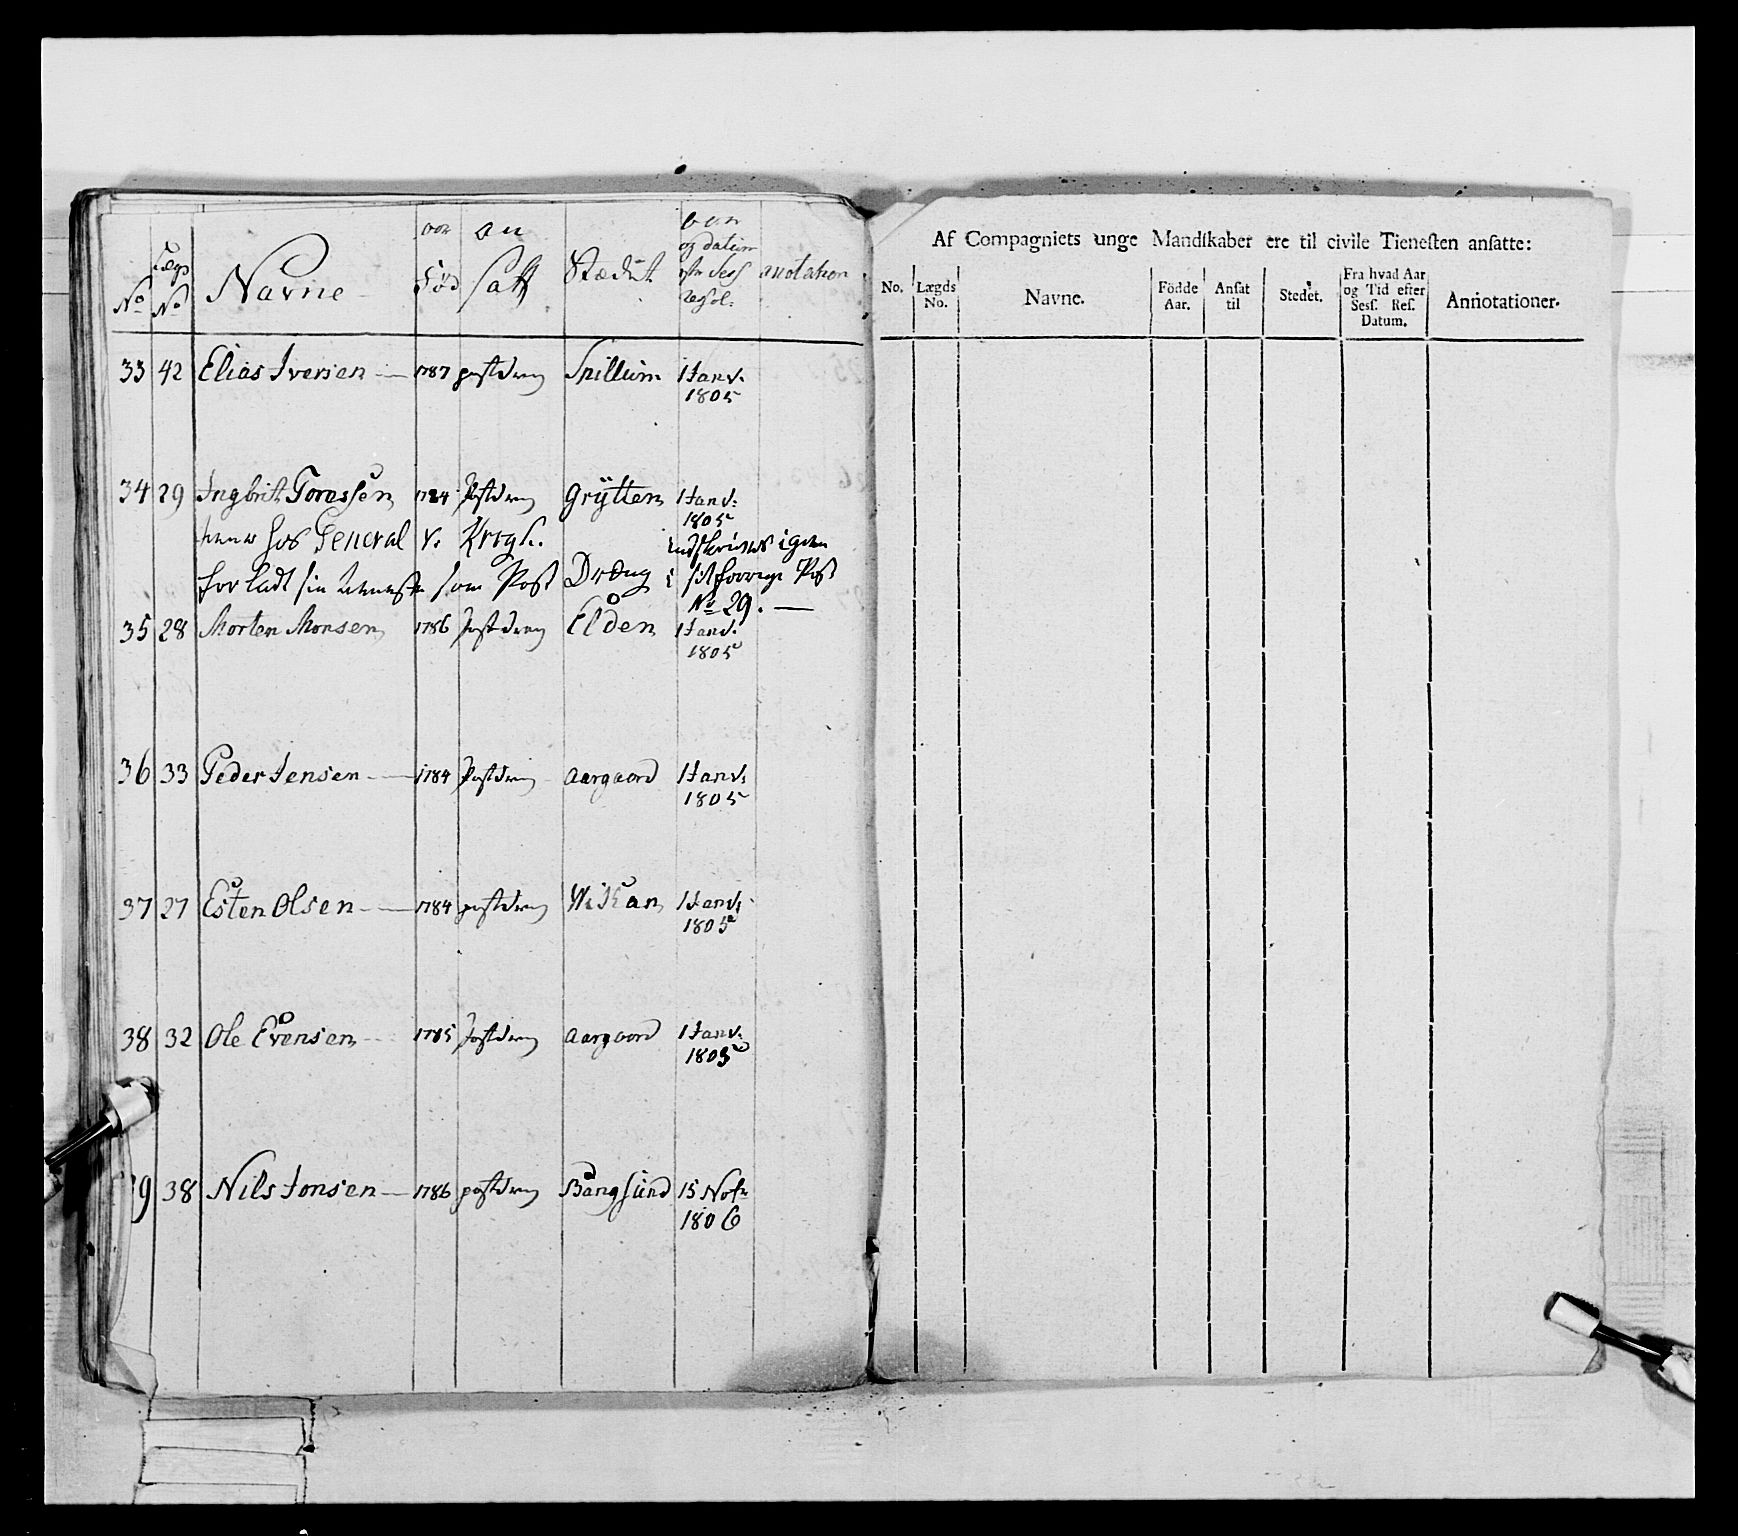 No Lægs No Navne Fød an satt Stædet og datum Sess resol: anotation
33 42 Elias Iversen 1787 postdreng Spillum 1 Janv: 1805
34 29 Ingbrit Toressen 1784 Postdreng Grÿtten 1 Janv: 1805
hos General v. Krogh. indskrives igien
forladt sin tieneste som Post Dreng i sit forrige Post
No 29.
35 28 Morten Monsen 1786 Postdreng Elden 1 Janv: 1805
36 33 Peder Jensen 1784 Postdreng Aargaard 1 Janv: 1805
37 27 Esten Olsen 1784 postdreng Wikan 1 Janv: 1805
38 32 Ole Evensen 1785 Postdreng Aargaard 1 Janv: 1805
9 38 Nils Jonsen 1786 postdreng Bangsund 15 Nofr 1806
Af Compagniets unge Mandſkaber ere til civile Tieneſten anſatte:
No. Lægds No. Navne. Födde Aar. Anſat til Stedet. Fra hvad Aar og Tid efter Sesſ. Reſ. Datum. Annotationer.